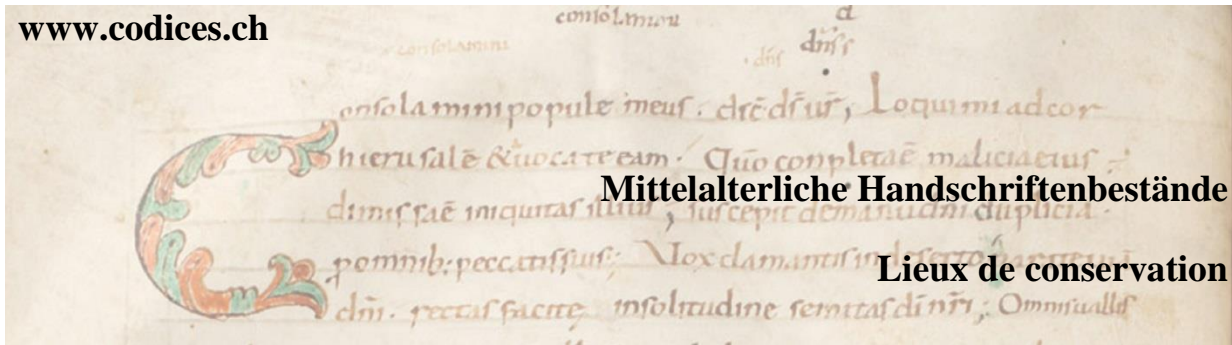 www.codices.ch
consolamini
consolamini
d
dnss
dns
Consolamini popule meus. dic ds ur, Loquimi ad cor
hierusalē & uocate eam. Qūo conpleta ē malicia eius
dimissa ē iniquitas illius, suscepit de manu dni duplicia.
p omnib; peccatis suis; Uox clamantis in deserto
dnī. rectas facite in solitudine semitas di nrī; Omnis uallis
Mittelalterliche Handschriftenbestände
Lieux de conservation